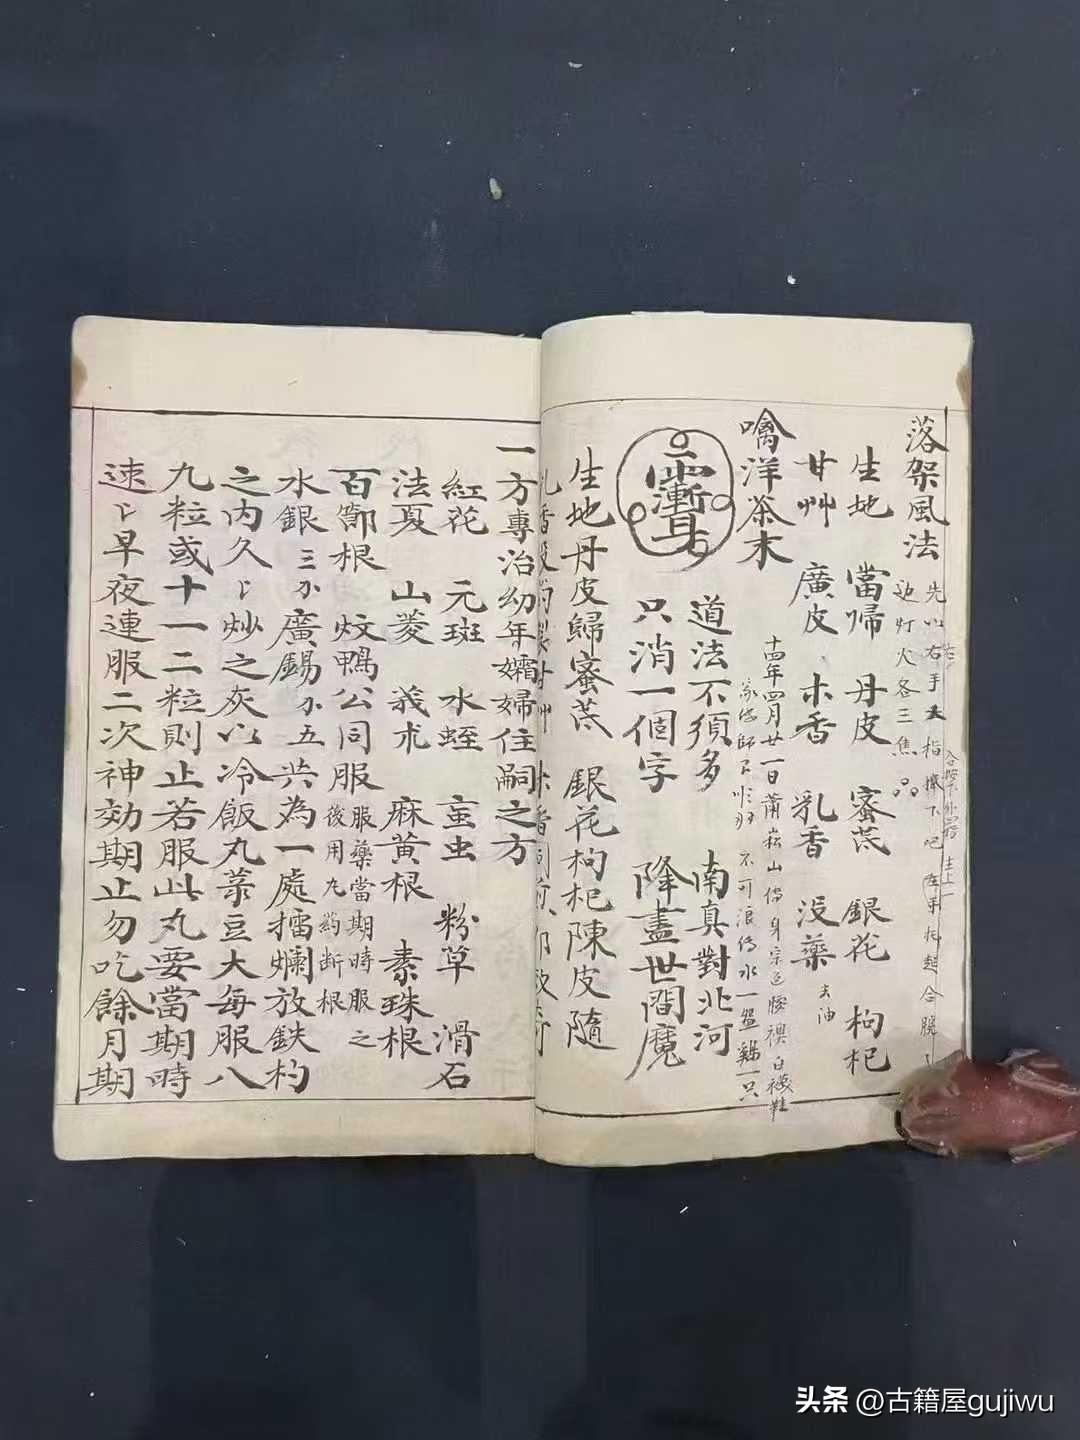 落架風法
先以右手大指擠下吧左手托起合腕
边灯火各三焦
生地 當歸 丹皮 蜜芪 銀花 枸杞
甘艸 廣皮 木香 乳香 没藥 去油
噙洋茶末
十四年四月廿一日莆崧山傳身宗
不可浪傳水一盌雞一只
道法不須多 南真對北河
只消一個字 降盡世間魔
生地丹皮歸蜜芪 銀花枸杞陳皮隨
一方專治幼年孀婦住嗣之方
紅花 元班 水蛭 䖟虫 粉草 滑石
法夏 山菱 莪朮 麻黄根 素珠根
百節根 炆鴨公同服服藥當期時服之後用九药断根
水銀三分廣錫分五共為一處擂爛放鉄杓
之内久〻炒之灰以冷飯丸菉豆大每服八
九粒或十一二粒則止若服此丸要當期時
速〻早夜連服二次神効期止勿吃餘月期
头条 @古籍屋gujiwu